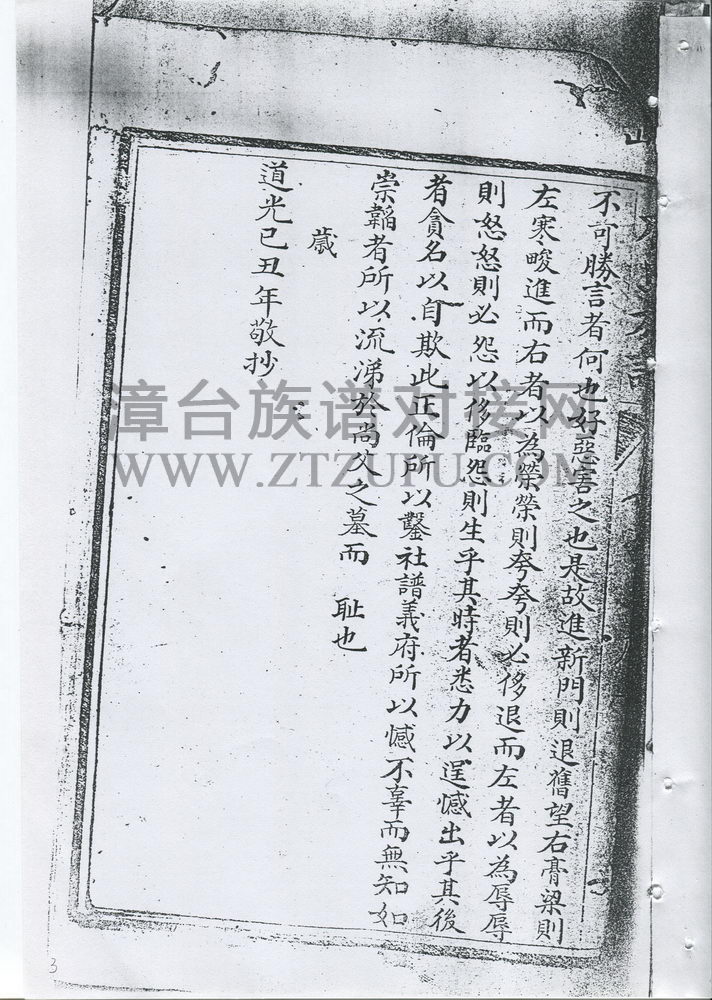 不可勝言者何也好惡害之也是故進新門則退舊望右膏梁則
左寒畯進而右者以為榮榮則夸夸則必侈退而左者以為辱辱
則怒怒則必怨以侈臨怨則生乎其時者悉力以逞憾出乎其後
者貪名以自欺此正倫所以鑿社譜義府所以憾不辜而無知如
崇韜者所以流涕於尚父之墓而 耻也
歲
道光己丑年敬抄
漳台族谱对接网
WWW.ZTZUPU.COM
3